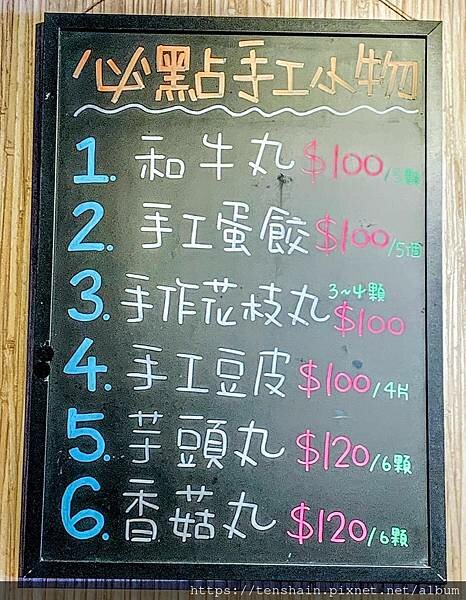 必點手工小物
1. 和牛丸 $100/5顆
2. 手工蛋餃 $100/5個
3. 手作花枝丸 3~4顆 $100
4. 手工豆皮 $100/4片
5. 芋頭丸 $120/6顆
6. 香菇丸 $120/6顆
https://tenshain.pixnet.net/album